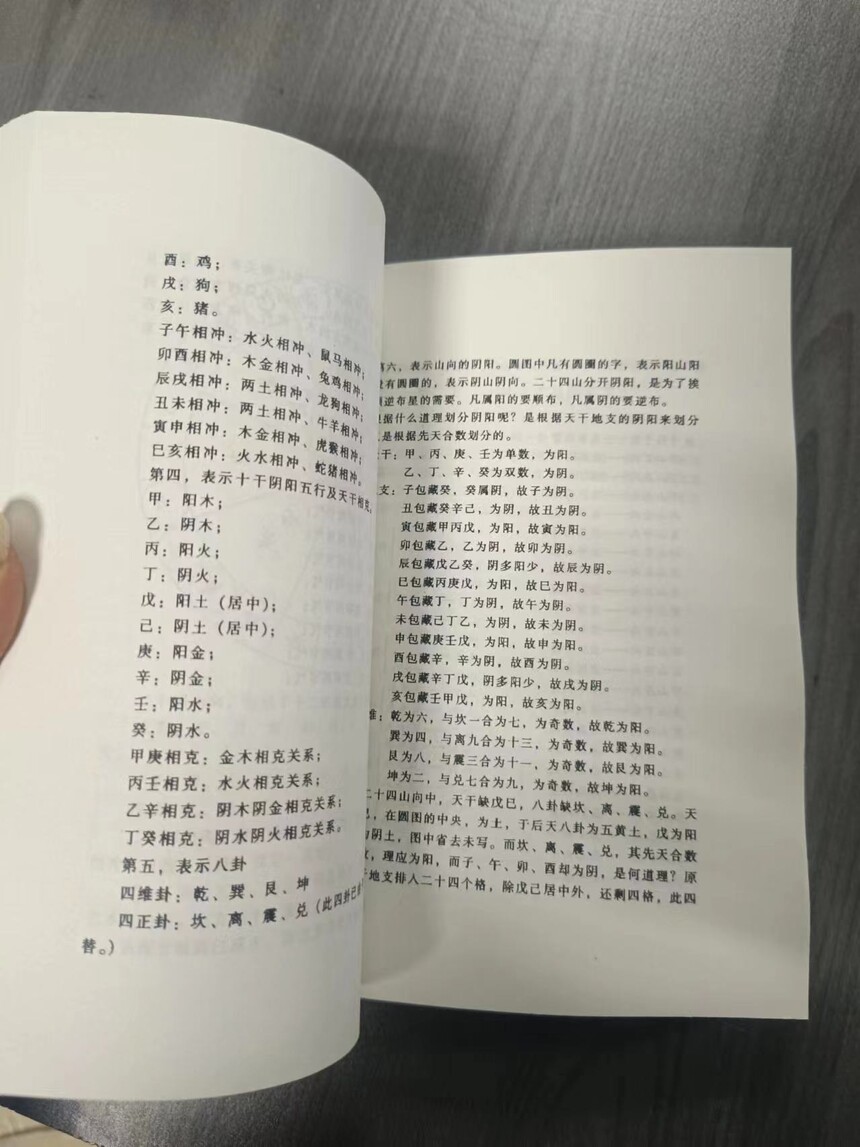 酉：鸡；
戌：狗；
亥：猪。
子午相冲：水火相冲、鼠马相冲；
卯酉相冲：木金相冲、兔鸡相冲；
辰戌相冲：两土相冲、龙狗相冲；
丑未相冲：两土相冲、牛羊相冲；
寅申相冲：木金相冲、虎猴相冲；
巳亥相冲：火水相冲、蛇猪相冲。
第四，表示十干阴阳五行及天干相克。
甲：阳木；
乙：阴木；
丙：阳火；
丁：阴火；
戊：阳土（居中）；
己：阴土（居中）；
庚：阳金；
辛：阴金；
壬：阳水；
癸：阴水。
甲庚相克：金木相克关系；
丙壬相克：水火相克关系；
乙辛相克：阴木阴金相克关系；
丁癸相克：阴水阴火相克关系。
第五，表示八卦
四维卦：乾、巽、艮、坤
四正卦：坎、离、震、兑（此四卦已
替。）
第六，表示山向的阴阳。圆图中凡有圆圈的字，表示阳山阳
有圆圈的，表示阴山阴向。二十四山分开阴阳，是为了挨
逆布星的需要。凡属阳的要顺布，凡属阴的要逆布。
根据什么道理划分阴阳呢？是根据天干地支的阴阳来划分
是根据先天合数划分的。
干：甲、丙、庚、壬为单数，为阳。
乙、丁、辛、癸为双数，为阴。
支：子包藏癸，癸属阴，故子为阴。
丑包藏癸辛己，为阴，故丑为阴。
寅包藏甲丙戊，为阳，故寅为阳。
卯包藏乙，乙为阴，故卯为阴。
辰包藏戊乙癸，阴多阳少，故辰为阴。
巳包藏丙庚戊，为阳，故巳为阳。
午包藏丁，丁为阴，故午为阴。
未包藏己丁乙，为阴，故未为阴。
申包藏庚壬戊，为阳，故申为阳。
酉包藏辛，辛为阴，故酉为阴。
戌包藏辛丁戊，阴多阳少，故戌为阴。
亥包藏壬甲戊，为阳，故亥为阳。
维：乾为六，与坎一合为七，为奇数，故乾为阳。
巽为四，与离九合为十三，为奇数，故巽为阳。
艮为八，与震三合为十一，为奇数，故艮为阳。
坤为二，与兑七合为九，为奇数，故坤为阳。
二十四山向中，天干缺戊巳，八卦缺坎、离、震、兑。天
，在圆图的中央，为土，于后天八卦为五黄土，戊为阳
为阴土，图中省去未写。而坎、离、震、兑，其先天合数
，理应为阳，而子、午、卯、酉却为阴，是何道理？原
地支排人二十四个格，除戊己居中外，还剩四格，此四